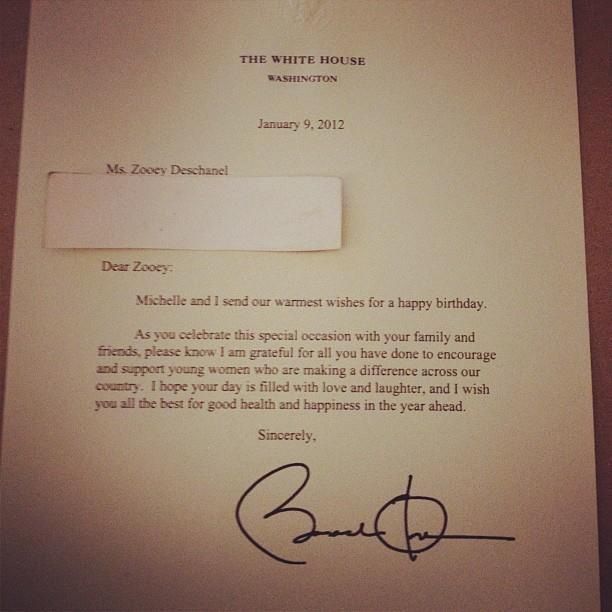 THE WHITE HOUSE
WASHINGTON
January 9, 2012
Ms. Zooey Deschanel
Dear Zooey:
Michelle and I send our warmest wishes for a happy birthday.
As you celebrate this special occasion with your family and
friends, please know I am grateful for all you have done to encourage
and support young women who are making a difference across our
country. I hope your day is filled with love and laughter, and I wish
you all the best for good health and happiness in the year ahead.
Sincerely,